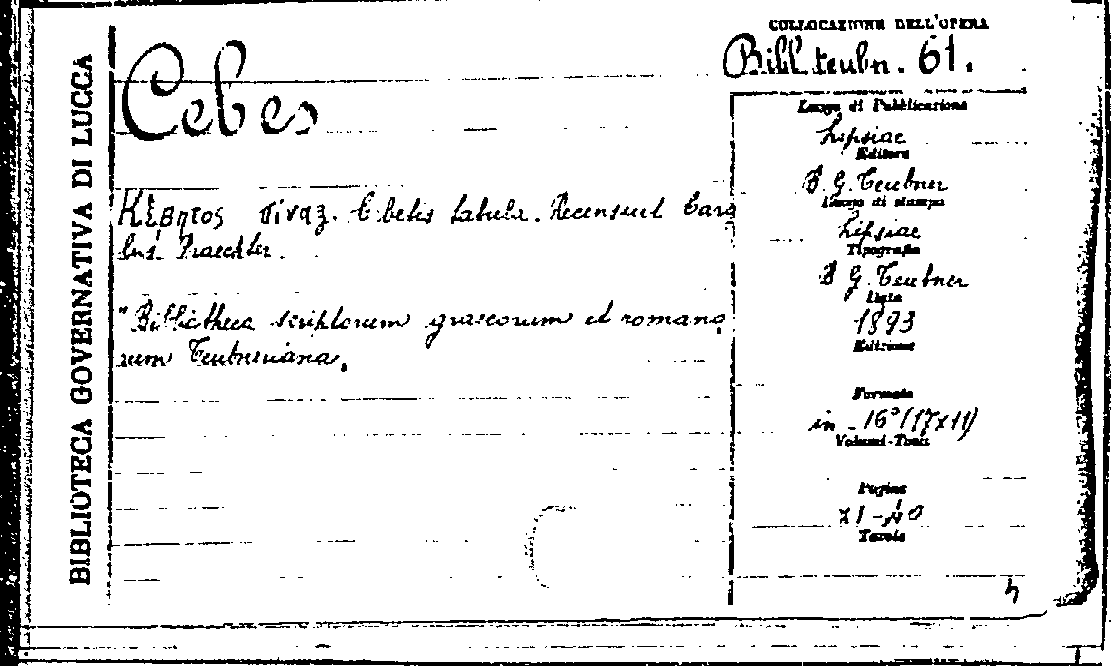 BIBLIOTECA GOVERNATIVA DI LUCCA
COLLOCAZIONE DELL'OPERA
Bibl. teubn. 61.
Cebes
Κέβητος πίναξ. Cebetis tabula. Recensuit Caro
lus Praechter.
"Bibliotheca scriptorum graecorum et romano
rum Teubneriana.
Luogo di Pubblicazione
Lipsiae
Editore
B. G. Teubner
Luogo di stampa
Lipsiae
Tipografia
B. G. Teubner
Data
1893
Edizione
Formato
in-16° (17x11)
Volumi-Tomi
Pagine
XI-40
Tavole